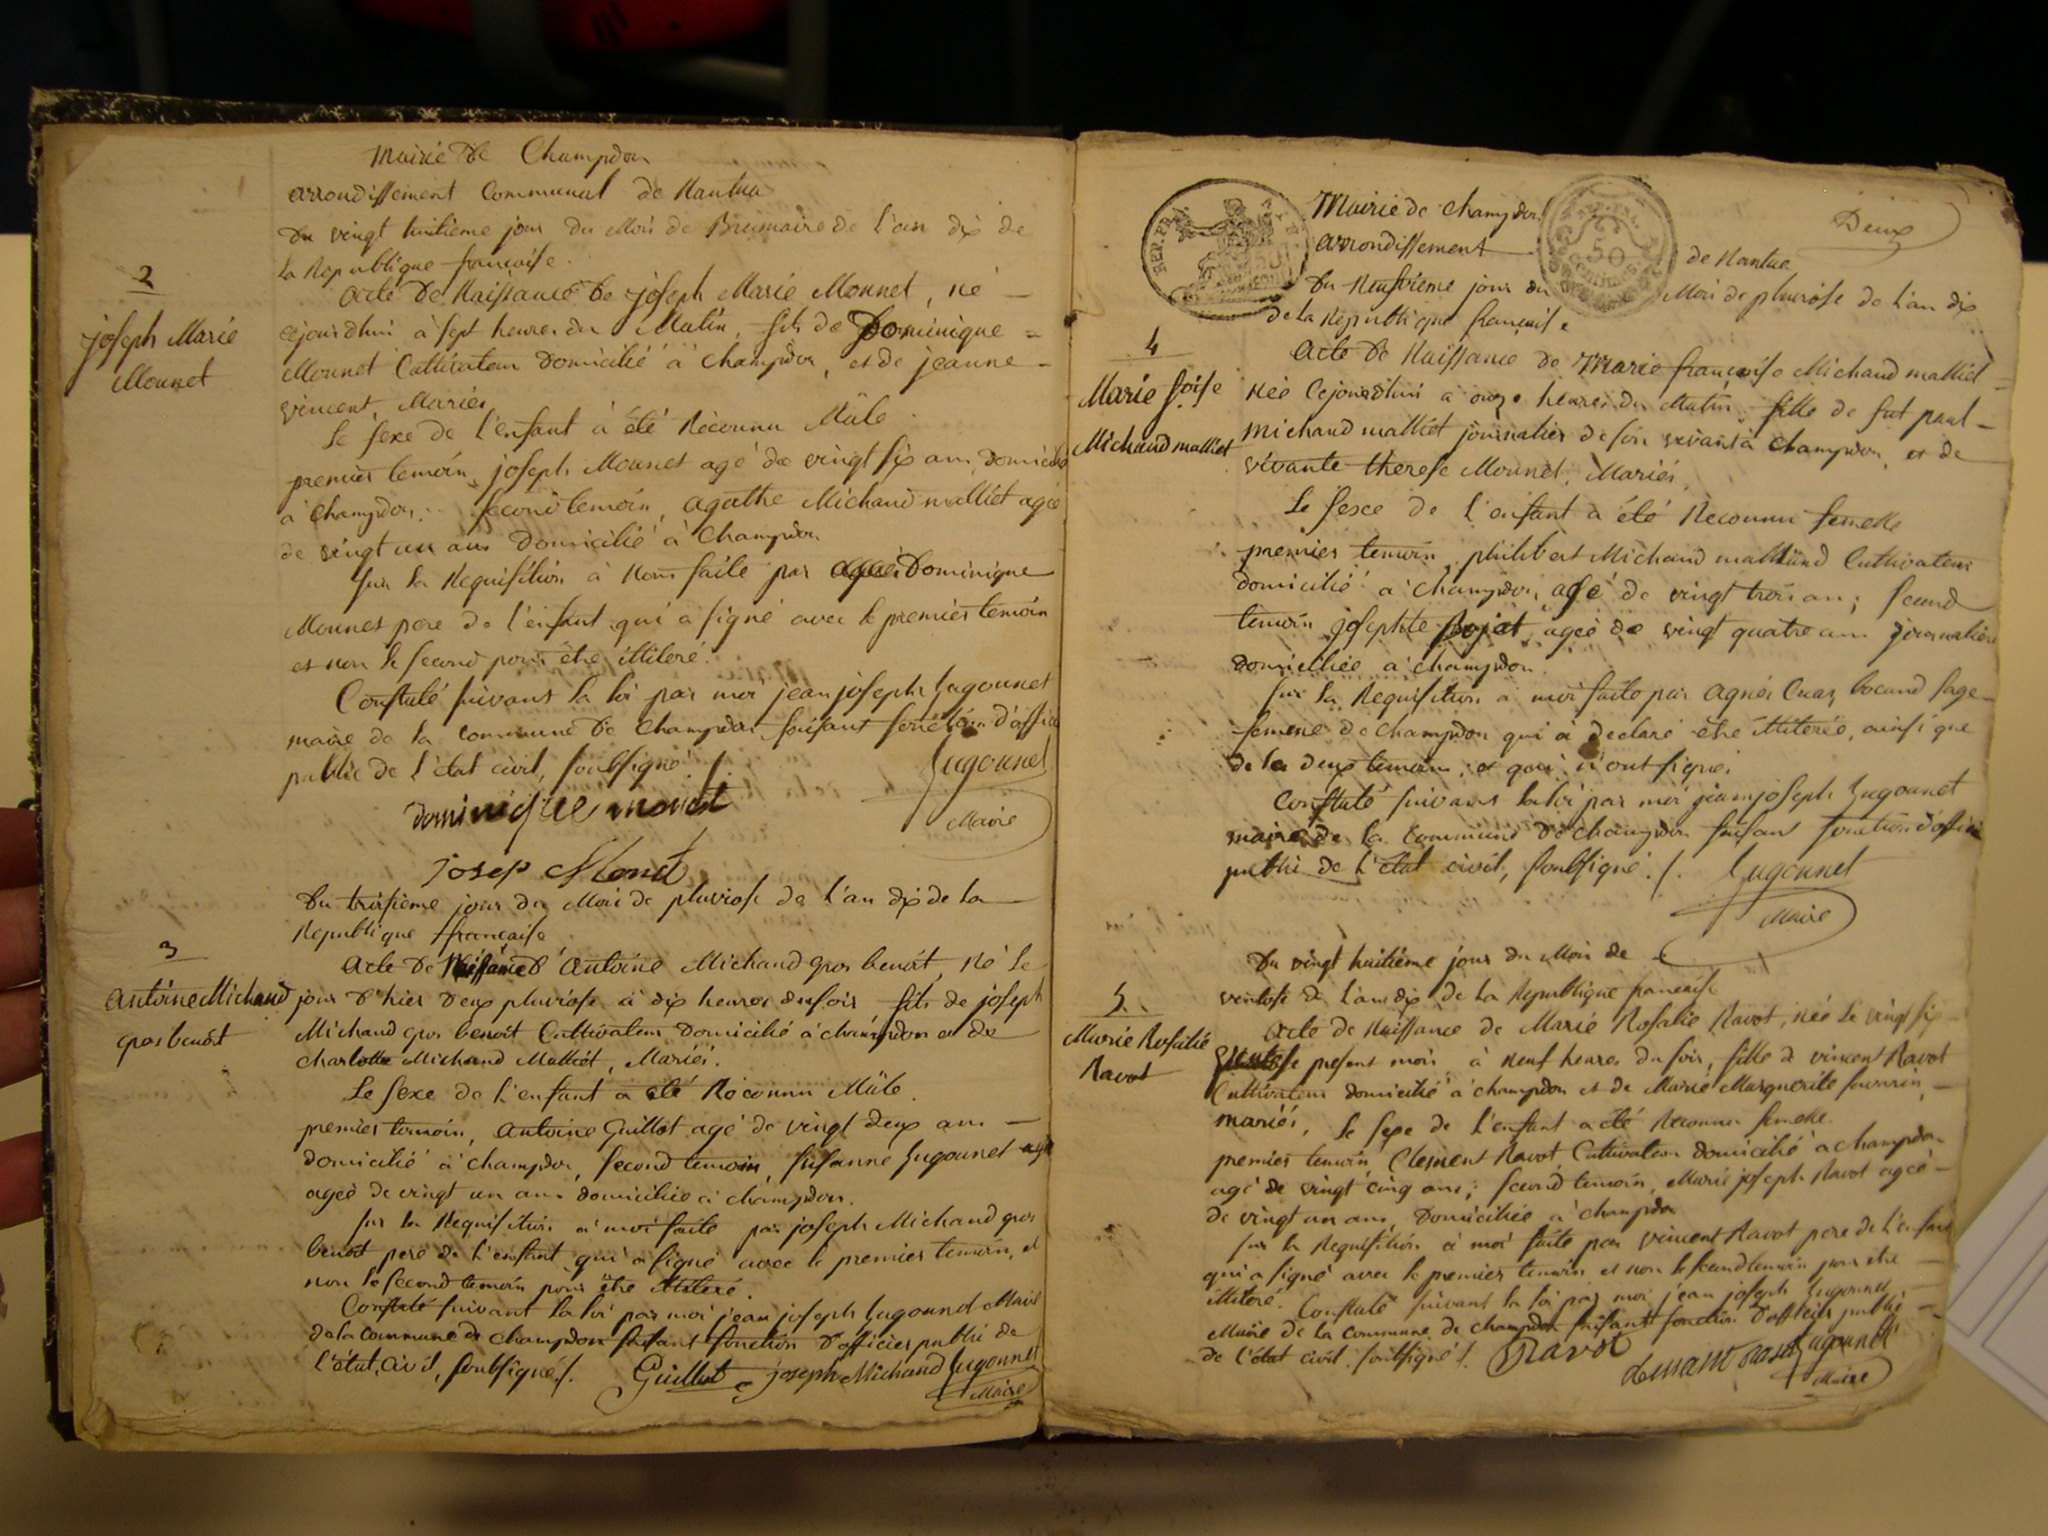 Mairie de Champdor
arrondissement Communal de Nantua
Du vingt huitième jour du Mois de Brumaire de l'an dix de
la Republique françoise.
2
joseph Marie
Monnet
Acte de Naissance de joseph Marie Monnet, né
cejourdhui à sept heures du Matin, fils de Dominique
Monnet Cultivateur Domicilié à Champdor, et de jeanne
vincent, Mariés
Le sexe de l'enfant à été Réconnu Mâle.
premier temoin joseph Monnet agé de vingt six ans Domicilié
à Champdor. second temoin, agathe Michaud malliet agée
de vingt un ans Domicilié à Champdor
sur la Requisition à Nous faite par Dominique
Monnet pere de l'enfant qui a signé avec le premier temoin
et non le second pour être illiteré.
Constaté suivant la loi par moi jean joseph Zugonnet
maire de la commune de Champdor faisant d'officier
public de l'état civil, soussigné ./.
Zugonnet
Maire
dominique monet
josep Monet
Du troisieme jour du Mois de pluviose de l'an dix de la
Republique françaîse
3
Antoine Michaud
gros benoît
Acte de Naissance d'Antoine Michaud gros benoît, né le
jour d'hier deux pluviose à dix heures du soir fils de joseph
Michaud gros benoît Cultivateur Domicilié à champdor et de
charlotte Michaud Malliet, Mariés.
Le sexe de l'enfant à été Réconnu Mâle.
premier temoin, Antoine Guillot agé de vingt deux ans
domicilié à champdor, second temoin, susanne Zugonnet
ageé de vingt un ans domiciliée à champdor.
sur la Requisition à moi faite par joseph Michaud gros
benoit pere de l'enfant qui à signé avec le premier temoin, et
non le second temoin pour être illiteré.
Constaté suivant la loi par moi jean joseph Zugonnet Maire
de la commune de champdor faisant fonction d'officier public de
l'état civil, soussigné ./.
Guillot joseph Michaud Zugonnet
Maire
Deux
REP. FRA.
50
centimes
Mairie de champdor
arrondissement de Nantua
Du Neufvieme jour du Mois de pluviose de l'an dix
de la République françaîse
4
Marie foise
Michaud malliet
Acte de Naissance de Marie françoise Michaud malliet
née Cejourdhui à onze heures du Matin fille de fut paul
Michaud malliet journalier de son vivant à Champdor, et de
vivante therese Monnet, Mariés,
Le sexe de l'enfant à été Reconnu femelle
premier temoin, philibert Michaud Cultivateur
domicilié à champdor, agé de vingt trois ans; second
temoin josephte agée de vingt quatre ans journaliere
domiciliée à champdon.
sur la Requisition à moi faite par agnés bocand sage
femme de champdon qui à declaré être illiterée, ainsi que
de les deux temoins, et qui n'ont signé.
Constaté suivant la loi par moi jean joseph Zugonnet
maire de la commune de champdor faisan fonction d'officier
public de l'état civil, soussigné. /. Zugonnet
Maire
Du vingt huitième jour du Mois de
ventose de l'an dix de la Republique francaise
5
Marie Rosalie
Ravot
Acte de Naissance de Marie Rosalie Ravot, née Le vingt six
present mois à neuf heures du soir, fille de vincent Ravot
Cultivateur domicilié à champdon et de Marie Marguerite
mariés, Le sexe de l'enfant a été Reconnu femelle.
premier temoin, Clement Ravot Cultivateur domicilié à champdor
agé de vingt cinq ans; second temoin, Marie joseph Ravot ageé
de vingt un ans, Domiciliée à champdor
sur la Requisition à moi faite par vincent Ravot pere de l'enfant
qui a signé avec le premier temoin et non le second temoin pour etre
illiteré. Constaté suivant la loi par moi jean joseph Zugonnet
Maire de la commune de champdor faisant fonction d'officier public
de l'état civil soussigné /. Ravot
Zugonnet
Maire